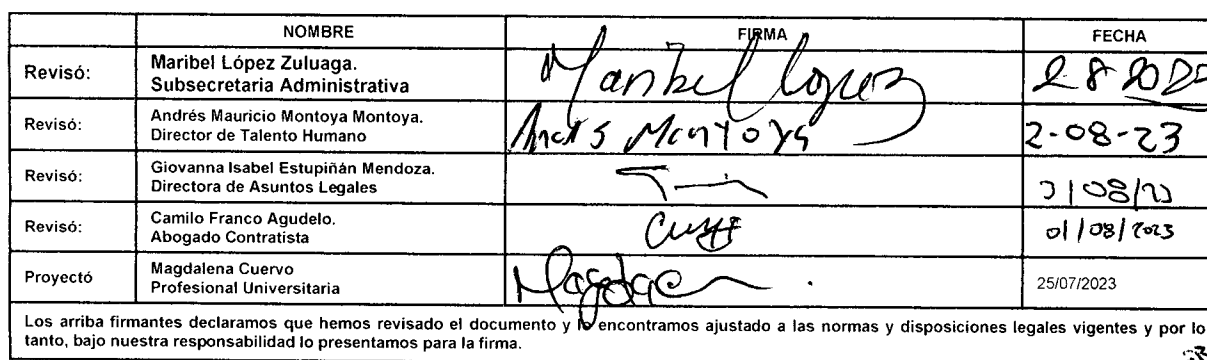 NOMBRE FIRMA FECHA
Revisó: Maribel López Zuluaga.
Subsecretaria Administrativa
Maribel López
Revisó: Andrés Mauricio Montoya Montoya.
Director de Talento Humano
Andrés Montoya 2-08-23
Revisó: Giovanna Isabel Estupiñán Mendoza.
Directora de Asuntos Legales
Revisó: Camilo Franco Agudelo.
Abogado Contratista
01/08/2023
Proyectó Magdalena Cuervo
Profesional Universitaria
25/07/2023
Los arriba firmantes declaramos que hemos revisado el documento y lo encontramos ajustado a las normas y disposiciones legales vigentes y por lo
tanto, bajo nuestra responsabilidad lo presentamos para la firma.